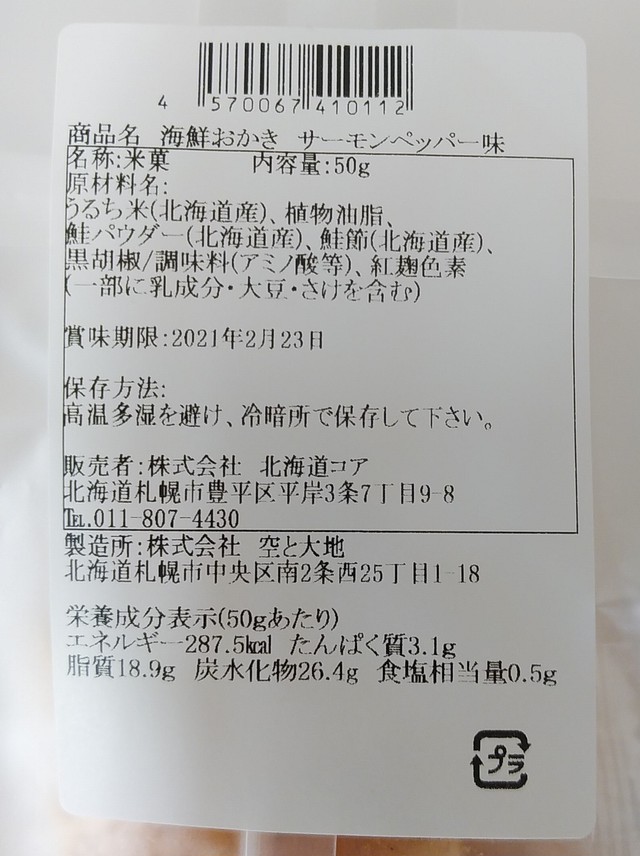 4 570067 410112
商品名 海鮮おかき サーモンペッパー味
名称:米菓 内容量:50g
原材料名:
うるち米(北海道産)、植物油脂、
鮭パウダー(北海道産)、鮭節(北海道産)、
黒胡椒/調味料(アミノ酸等)、紅麹色素
(一部に乳成分・大豆・さけを含む)
賞味期限:2021年2月23日
保存方法:
高温多湿を避け、冷暗所で保存して下さい。
販売者:株式会社 北海道コア
北海道札幌市豊平区平岸3条7丁目9-8
℡.011-807-4430
製造所:株式会社 空と大地
北海道札幌市中央区南2条西25丁目1-18
栄養成分表示(50gあたり)
エネルギー287.5kcal たんぱく質3.1g
脂質18.9g 炭水化物26.4g 食塩相当量0.5g
プラ